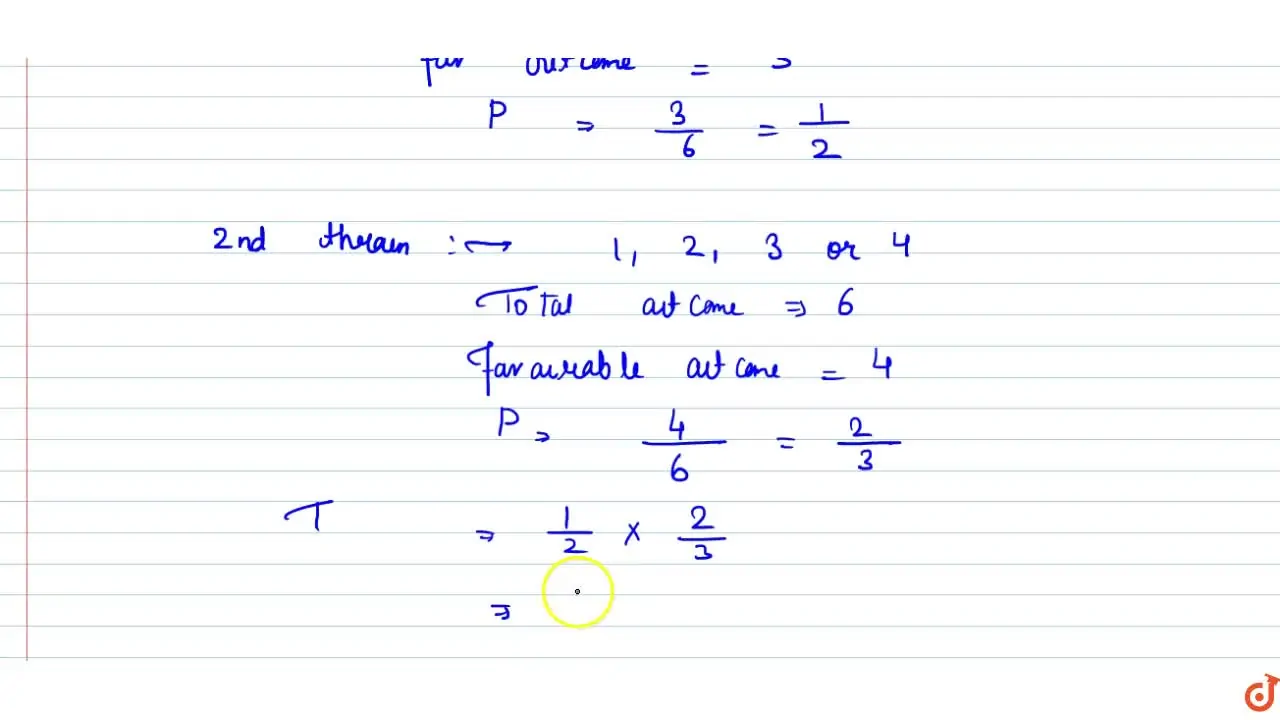 outcome =
P ⇒ 3/6 = 1/2
2nd thrown :→ 1, 2, 3 or 4
Total outcome ⇒ 6
Favourable outcome = 4
P ⇒ 4/6 = 2/3
T ⇒ 1/2 × 2/3
⇒